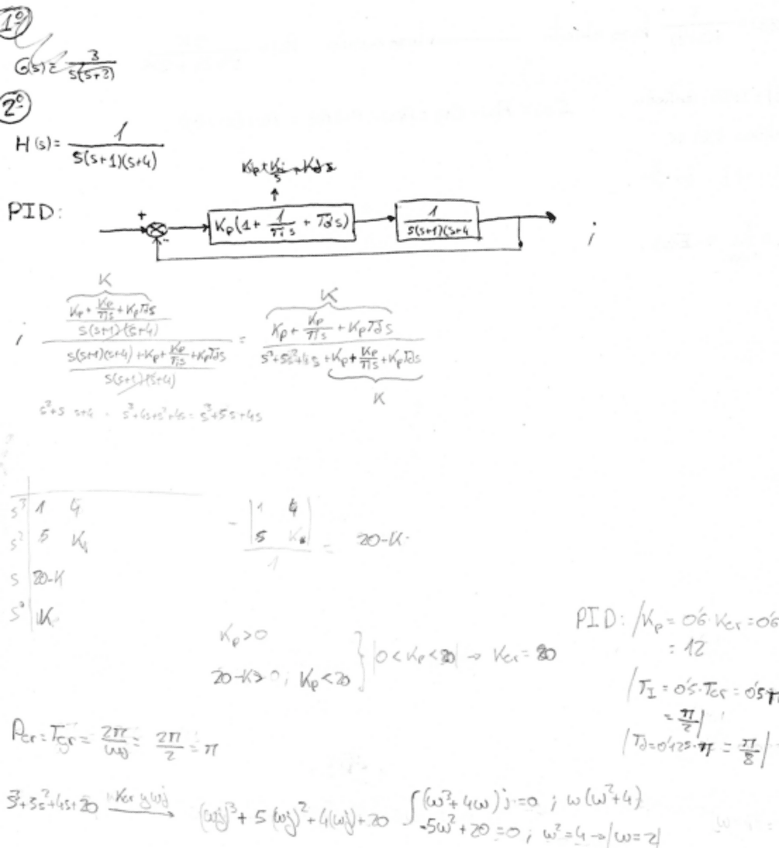 1º
G(s) = 3/(s(s+2))
2º
H(s) = 1/(s(s+1)(s+4))
Kp + Ki/s + Kds
PID:
+ - Kp(1 + 1/(Tis) + Tds) 1/(s(s+1)(s+4 ;
K K
; ((Kp + Kp/(Tis) + KpTds)/(s(s+1)(s+4)))/((s(s+1)(s+4) + Kp + Kp/(Tis) + KpTds)/(s(s+1)(s+4))) = (Kp + Kp/(Tis) + KpTds)/(s³+5s²+4s + Kp + Kp/(Tis) + KpTds)
K
s²+s s+4 = s³+4s+s²+4s = s³+5s+4s
s³ 1 4 - |1 4|
s² 5 K |5 K| = 20-K
s 20-K 1
s⁰ K
Kp>0
20-K>0; Kp<20 } |0<Kp<20| → Kcr = 20
PID: /Kp = 0'6·Kcr = 0'6
= 12
/TI = 0'5·Tcr = 0'5π
= π/2|
/Td = 0'125·π = π/8|
Pcr = Tcr = 2π/ω = 2π/2 = π
s³+5s²+4s+20 Kcr y ωj → (ωj)³ + 5(ωj)² + 4(ωj) + 20 { (ω³+4ω)j = 0 ; ω(ω²+4)
-5ω²+20 = 0 ; ω²=4 → |ω=2|